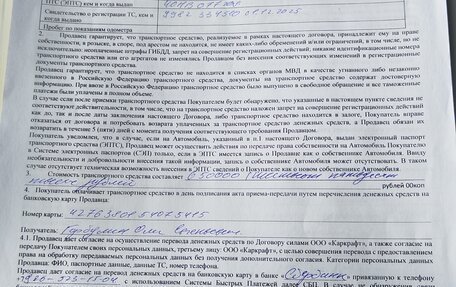 ПТС (ЭПТС) кем и когда выдан
Свидетельство о регистрации ТС, кем и
когда выдано
Пробег по показаниям одометра
2. Продавец гарантирует, что транспортное средство, реализуемое в рамках настоящего договора, принадлежит ему на праве
собственности, в розыске, в споре, под арестом не находится, не имеет каких-либо обременений и/или ограничений, в том числе, но не
исключительно: неоплаченные штрафы ГИБДД, запрет на совершение регистрационных действий; никакие идентификационные номера
транспортного средства или его агрегатов не изменялись Продавцом без внесения соответствующих изменений в регистрационные
документы транспортного средства.
Продавец гарантирует, что транспортное средство не находится в списках органов МВД в качестве угнанного либо незаконно
ввезенного в Российскую Федерацию транспортного средства, документы на транспортное средство содержат достоверную
информацию. При ввозе в Российскую Федерацию транспортное средство было выпущено в свободное обращение и все таможенные
платежи были уплачены в полном объеме.
В случае если после приемки транспортного средства Покупателем будет обнаружено, что указанные в настоящем пункте сведения не
соответствуют действительности, в том числе, что на транспортное средство наложен запрет на совершение регистрационных действий
как до, так и после даты заключения настоящего Договора, либо транспортное средство находится в залоге, Покупатель вправе
отказаться от договора и потребовать возврата уплаченных за транспортное средство денежных средств, а Продавец обязан их
возвратить в течение 5 (пяти) дней с момента получения соответствующего требования Продавцом.
Покупатель уведомлен, что в случае, если на Автомобиль, указанный в п.1 настоящего Договора, выдан электронный паспорт
транспортного средства (ЭПТС), Продавец может осуществить действия по передаче прав собственности на Автомобиль Покупателю
в Системе электронных паспортов (СЭП) только, если в ЭПТС внесена запись о Продавце как о собственнике Автомобиля. Ввиду
необязательности и добровольности внесения такой информации, запись о собственнике Автомобиля может отсутствовать. В таком
случае отсутствует техническая возможность внесения в ЭПТС сведений о Покупателе как о новом собственнике Автомобиля.
Стоимость транспортного средства составляет
рублей 00коп
4. Покупатель оплачивает транспортное средство в день подписания акта приема-передачи путем перечисления денежных средств на
банковскую карту Продавца:
Номер карты:
Получатель:
4.1. Продавец дает согласие на осуществление перевода денежных средств по Договору силами ООО «Каркрафт», а также согласие на
передачу Покупателем своих персональных данных, третьему лицу ООО «Каркрафт», с целью совершения перевода с предоставлением
права на обработку передаваемых персональных данных без получения дополнительного согласия. Категория персональных данных
Продавца: ФИО, паспортные данные, данные ТС, номер телефона.
Продавец дает согласие на перевод денежных средств на банковскую карту в банке привязанную к телефону
с использованием Системы Быстрых Платежей далее СБП. В случае не обнаружения связи